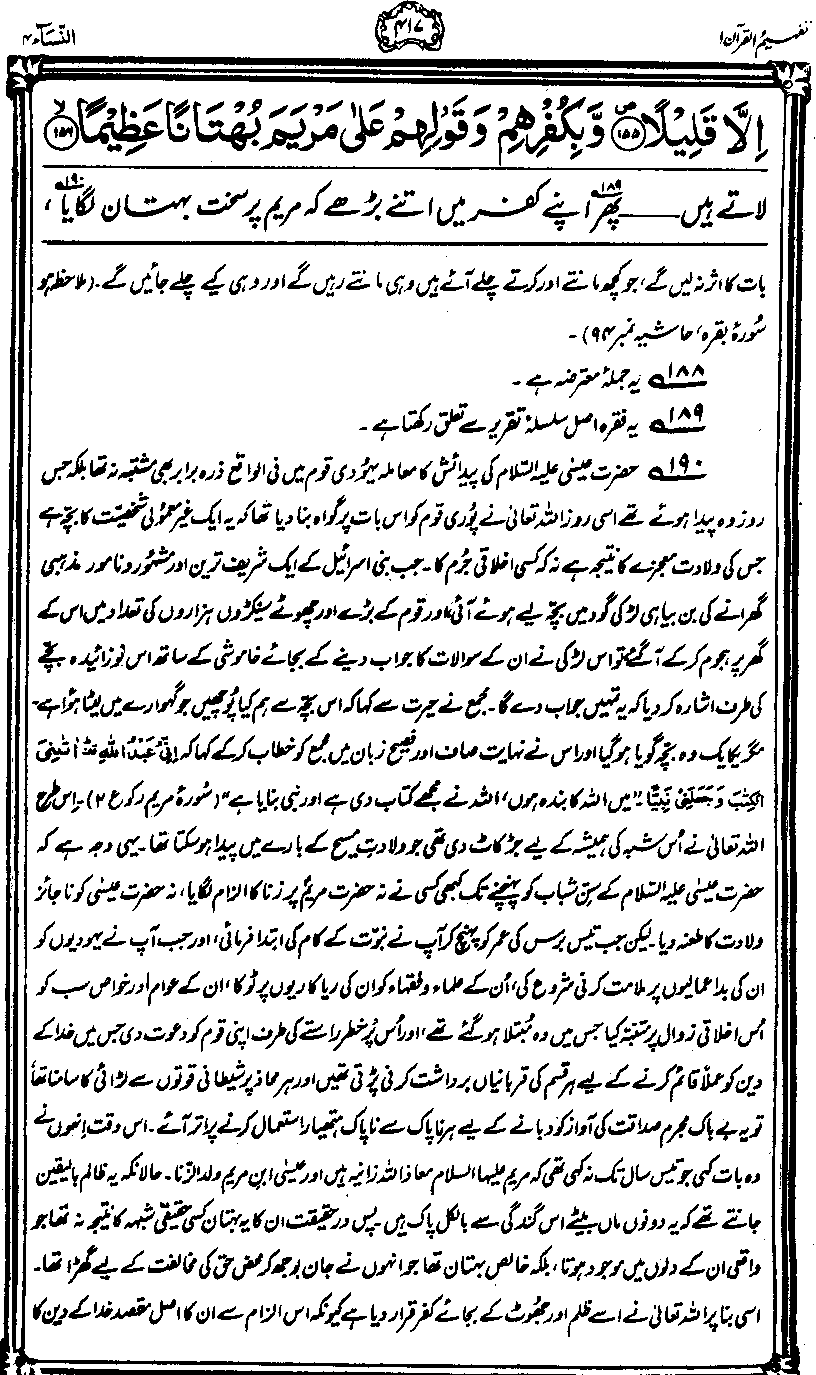 تفہیم القرآن ۱
۴۱۷
النساء ۴
اِلَّا قَلِیۡلًا ۪﴿۱۵۵﴾ وَّ بِکُفۡرِہِمۡ وَ قَوۡلِہِمۡ عَلٰی مَرۡیَمَ بُہۡتَانًا عَظِیۡمًا ﴿۱۵۶﴾ۙ
لاتے ہیں ــــــ پھر۱۸۹ اپنے کفر میں اتنے بڑھے کہ مریم پر سخت بہتان لگایا۱۹۰،
بات کا اثر نہ لیں گے، جو کچھ مانتے اور کرتے چلے آئے ہیں وہی مانتے رہیں گے اور وہی کیے چلے جائیں گے۔ (ملاحظہ ہو
سُورۂ بقرہ، حاشیہ نمبر ۹۴)۔
۱۸۸؎ یہ جملۂ معترضہ ہے۔
۱۸۹؎ یہ فقرہ اصل سلسلۂ تقریر سے تعلق رکھتا ہے۔
۱۹۰؎ حضرت عیسٰی علیہ السّلام کی پیدائش کا معاملہ یہودی قوم میں فی الواقع ذرہ برابر بھی مشتبہ نہ تھا بلکہ جس
روز وہ پیدا ہوئے تھے اسی روز اللہ تعالیٰ نے پُوری قوم کو اس بات پر گواہ بنا دیا تھا کہ یہ ایک غیر معمولی شخصیت کا بچّہ ہے
جس کی ولادت معجزے کا نتیجہ ہے نہ کہ کسی اخلاقی جُرم کا۔ جب بنی اسرائیل کے ایک شریف ترین اور مشہُور و نامور مذہبی
گھرانے کی بن بیاہی لڑکی گود میں بچّہ لیے ہوئے آئی، اور قوم کے بڑے اور چھوٹے سینکڑوں ہزاروں کی تعداد میں اس کے
گھر پر ہجوم کرکے آگئے، تو اس لڑکی نے ان کے سوالات کا جواب دینے کے بجائے خاموشی کے ساتھ اس نوزائیدہ بچّے
کی طرف اشارہ کر دیا کہ یہ تمہیں جواب دے گا۔ مجمع نے حیرت سے کہا کہ اس بچّے سے ہم کیا پُوچھیں جو گہوارے میں لیٹا ہوا ہے۔
مگر یکایک وہ بچّہ گویا ہو گیا اور اس نے نہایت صاف اور فصیح زبان میں مجمع کو خطاب کرکے کہا کہ اِنِّیْ عَبْدُ اللّٰہِ قف اٰتٰنِیَ
الْکِتٰبَ وَجَعَلَنِیْ نَبِیًّا۔ "میں اللہ کا بندہ ہوں، اللہ نے مجھے کتاب دی ہے اور نبی بنایا ہے" (سُورۂ مریم رکوع ۲)۔ اِس طرح
اللہ تعالیٰ نے اُس شبہ کی ہمیشہ کے لیے جڑ کاٹ دی تھی جو ولادتِ مسیح کے بارے میں پیدا ہو سکتا تھا۔ یہی وجہ ہے کہ
حضرت عیسٰی علیہ السّلام کے سنِّ شباب کو پہنچنے تک کبھی کسی نے نہ حضرت مریمؑ پر زنا کا الزام لگایا، نہ حضرت عیسٰی کو ناجائز
ولادت کا طعنہ دیا۔ لیکن جب تیس برس کی عمر کو پہنچ کر آپ نے نبوّت کے کام کی ابتدا فرمائی، اور جب آپ نے یہودیوں کو
ان کی بداعمالیوں پر ملامت کرنی شروع کی، اُن کے علماء و فقہاء کو ان کی ریاکاریوں پر ٹوکا، ان کے عوام اور خواص سب کو
اُس اخلاقی زوال پر متنبّہ کیا جس میں وہ مُبتلا ہو گئے تھے، اور اُس پُرخطر راستے کی طرف اپنی قوم کو دعوت دی جس میں خدا کے
دین کو عملاً قائم کرنے کے لیے ہر قسم کی قربانیاں برداشت کرنی پڑتی تھیں اور ہر محاذ پر شیطانی قوتوں سے لڑائی کا سامنا تھا،
تو یہ بے باک مجرم صداقت کی آواز کو دبانے کے لیے ہر ناپاک سے ناپاک ہتھیار استعمال کرنے پر اتر آئے۔ اس وقت انہوں نے
وہ بات کہی جو تیس سال تک نہ کہی تھی کہ مریم علیہا السلام معاذ اللہ زانیہ ہیں اور عیسٰی ابن مریم ولد الزنا۔ حالانکہ یہ ظالم بالیقین
جانتے تھے کہ یہ دونوں ماں بیٹے اس گندگی سے بالکل پاک ہیں۔ پس درحقیقت ان کا یہ بہتان کسی حقیقی شبہ کا نتیجہ نہ تھا جو
واقعی ان کے دلوں میں موجود ہوتا، بلکہ خالص بہتان تھا جو انہوں نے جان بُوجھ کر محض حق کی مخالفت کے لیے گھڑا تھا۔
اسی بنا پر اللہ تعالیٰ نے اسے ظلم اور جھُوٹ کے بجائے کفر قرار دیا ہے کیونکہ اس الزام سے ان کا اصل مقصد خدا کے دین کا